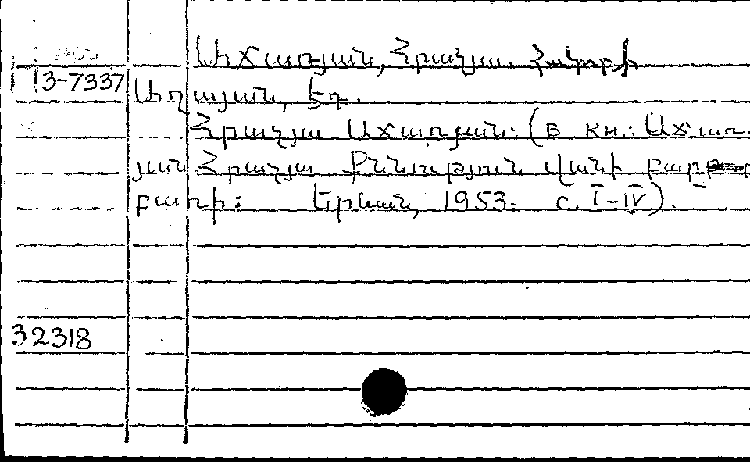 Աճառյան, Հրաչյա Հակոբի
13-7337
Աղայան, Էդ.
Հրաչյա Աճառյան. (в кн.: Աճառ-
յան Հրաչյա Քննություն Վանի բարբ
բառի: Երևան, 1953. с. I-IV).
32318